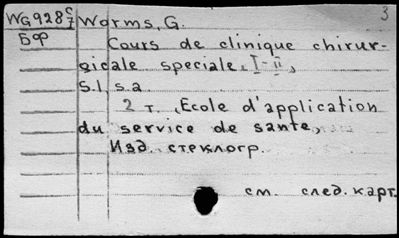 3
WG928 c/7 Worms, G.
БФ
Cours de clinique chirur-
gicale speciale, I-II,
S.l, s.a
2 т. (Ecole d'application
du service de sante,
Изд. стеклогр.
см. след. карт.